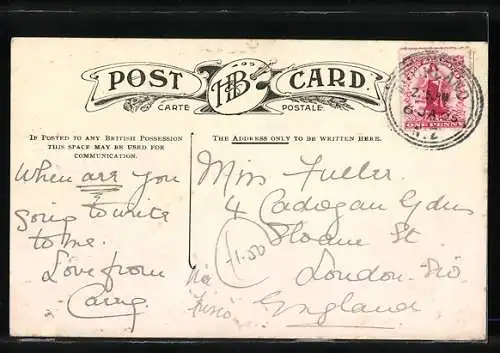 POST CARD.
HB
CARTE POSTALE
IF POSTED TO ANY BRITISH POSSESSION
THIS SPACE MAY BE USED FOR
COMMUNICATION.
THE ADDRESS ONLY TO BE WRITTEN HERE.
When are you
going to write
to me.
Love from
Miss Fuller.
4 Cadogan Gdns
Sloane St.
London. S.W.
England
via
Frisco
ONE PENNY